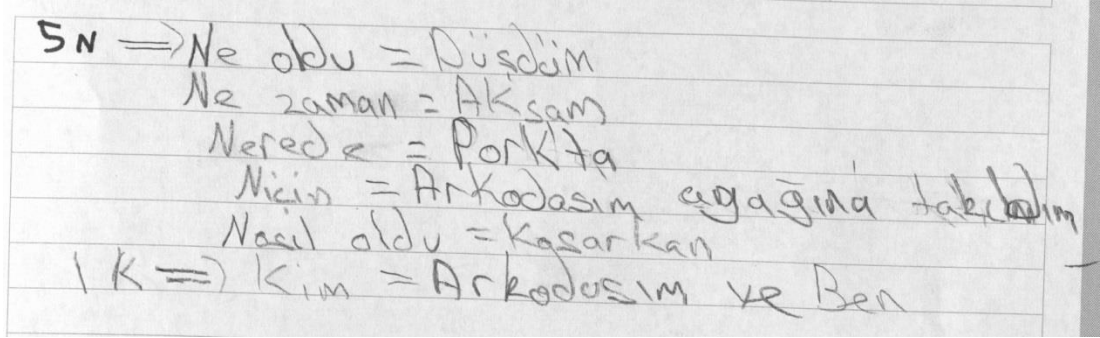 5N ⇒ Ne oldu = Düşdüm
Ne zaman = Akşam
Nerede = Parkta
Niçin = Arkadaşım ayağına takıldım
Nasıl oldu = Koşarkan
1K ⇒ Kim = Arkadaşım ve Ben